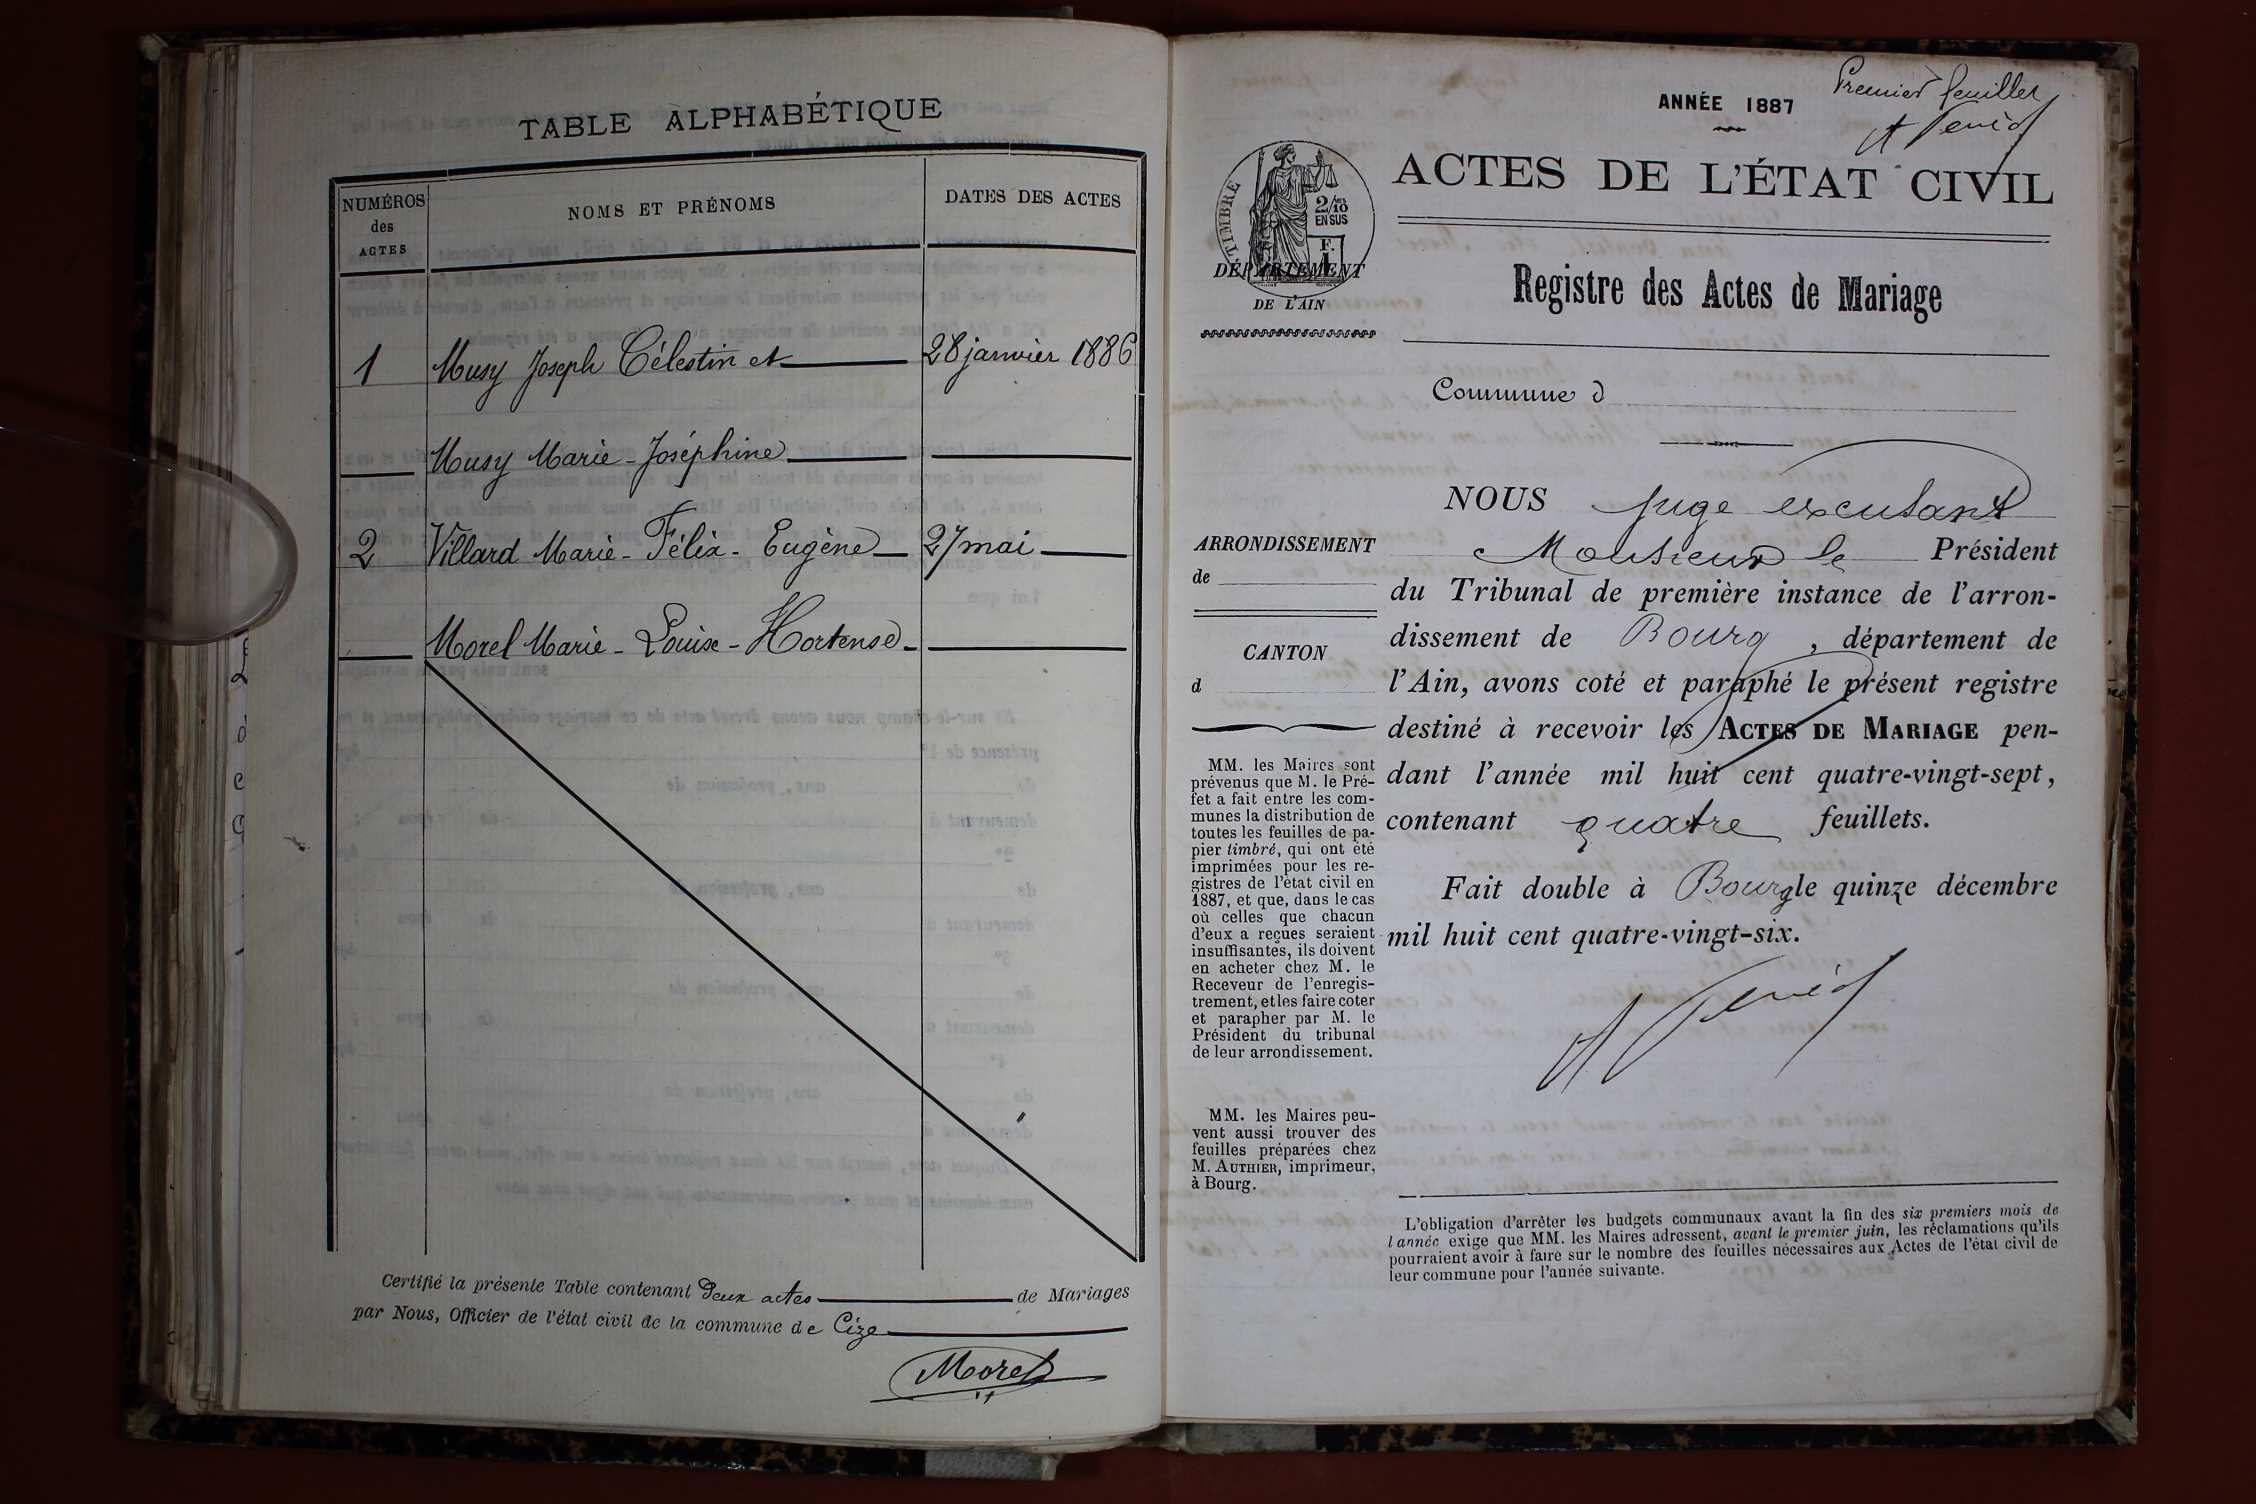 TABLE ALPHABÉTIQUE
NUMÉROS des ACTES
NOMS ET PRÉNOMS
DATES DES ACTES
1 Musy Joseph Célestin et 28 janvier 1886
Musy Marie-Joséphine
2 Villard Marie-Félix-Eugène 27 mai
Morel Marie-Louise-Hortense
Certifié la présente Table contenant deux actes de Mariages
par Nous, Officier de l'état civil de la commune de Cize
Morel
Premier feuillet
ANNÉE 1887
ACTES DE L'ÉTAT CIVIL
TIMBRE
2/10
EN SUS
F.
1
DÉPARTEMENT
DE L'AIN
Registre des Actes de Mariage
Commune d
ARRONDISSEMENT
de
CANTON
d
MM. les Maires sont
prévenus que M. le Pré-
fet a fait entre les com-
munes la distribution de
toutes les feuilles de pa-
pier timbré, qui ont été
imprimées pour les re-
gistres de l'état civil en
1887, et que, dans le cas
où celles que chacun
d'eux a reçues seraient
insuffisantes, ils doivent
en acheter chez M. le
Receveur de l'enregis-
trement, et les faire coter
et parapher par M. le
Président du tribunal
de leur arrondissement.
MM. les Maires peu-
vent aussi trouver des
feuilles préparées chez
M. AUTHIER, imprimeur,
à Bourg.
NOUS juge excusant
Monsieur le Président
du Tribunal de première instance de l'arron-
dissement de Bourg, département de
l'Ain, avons coté et paraphé le présent registre
destiné à recevoir les ACTES DE MARIAGE pen-
dant l'année mil huit cent quatre-vingt-sept,
contenant quatre feuillets.
Fait double à Bourg le quinze décembre
mil huit cent quatre-vingt-six.
L'obligation d'arrêter les budgets communaux avant la fin des six premiers mois de
l'année exige que MM. les Maires adressent, avant le premier juin, les réclamations qu'ils
pourraient avoir à faire sur le nombre des feuilles nécessaires aux Actes de l'état civil de
leur commune pour l'année suivante.